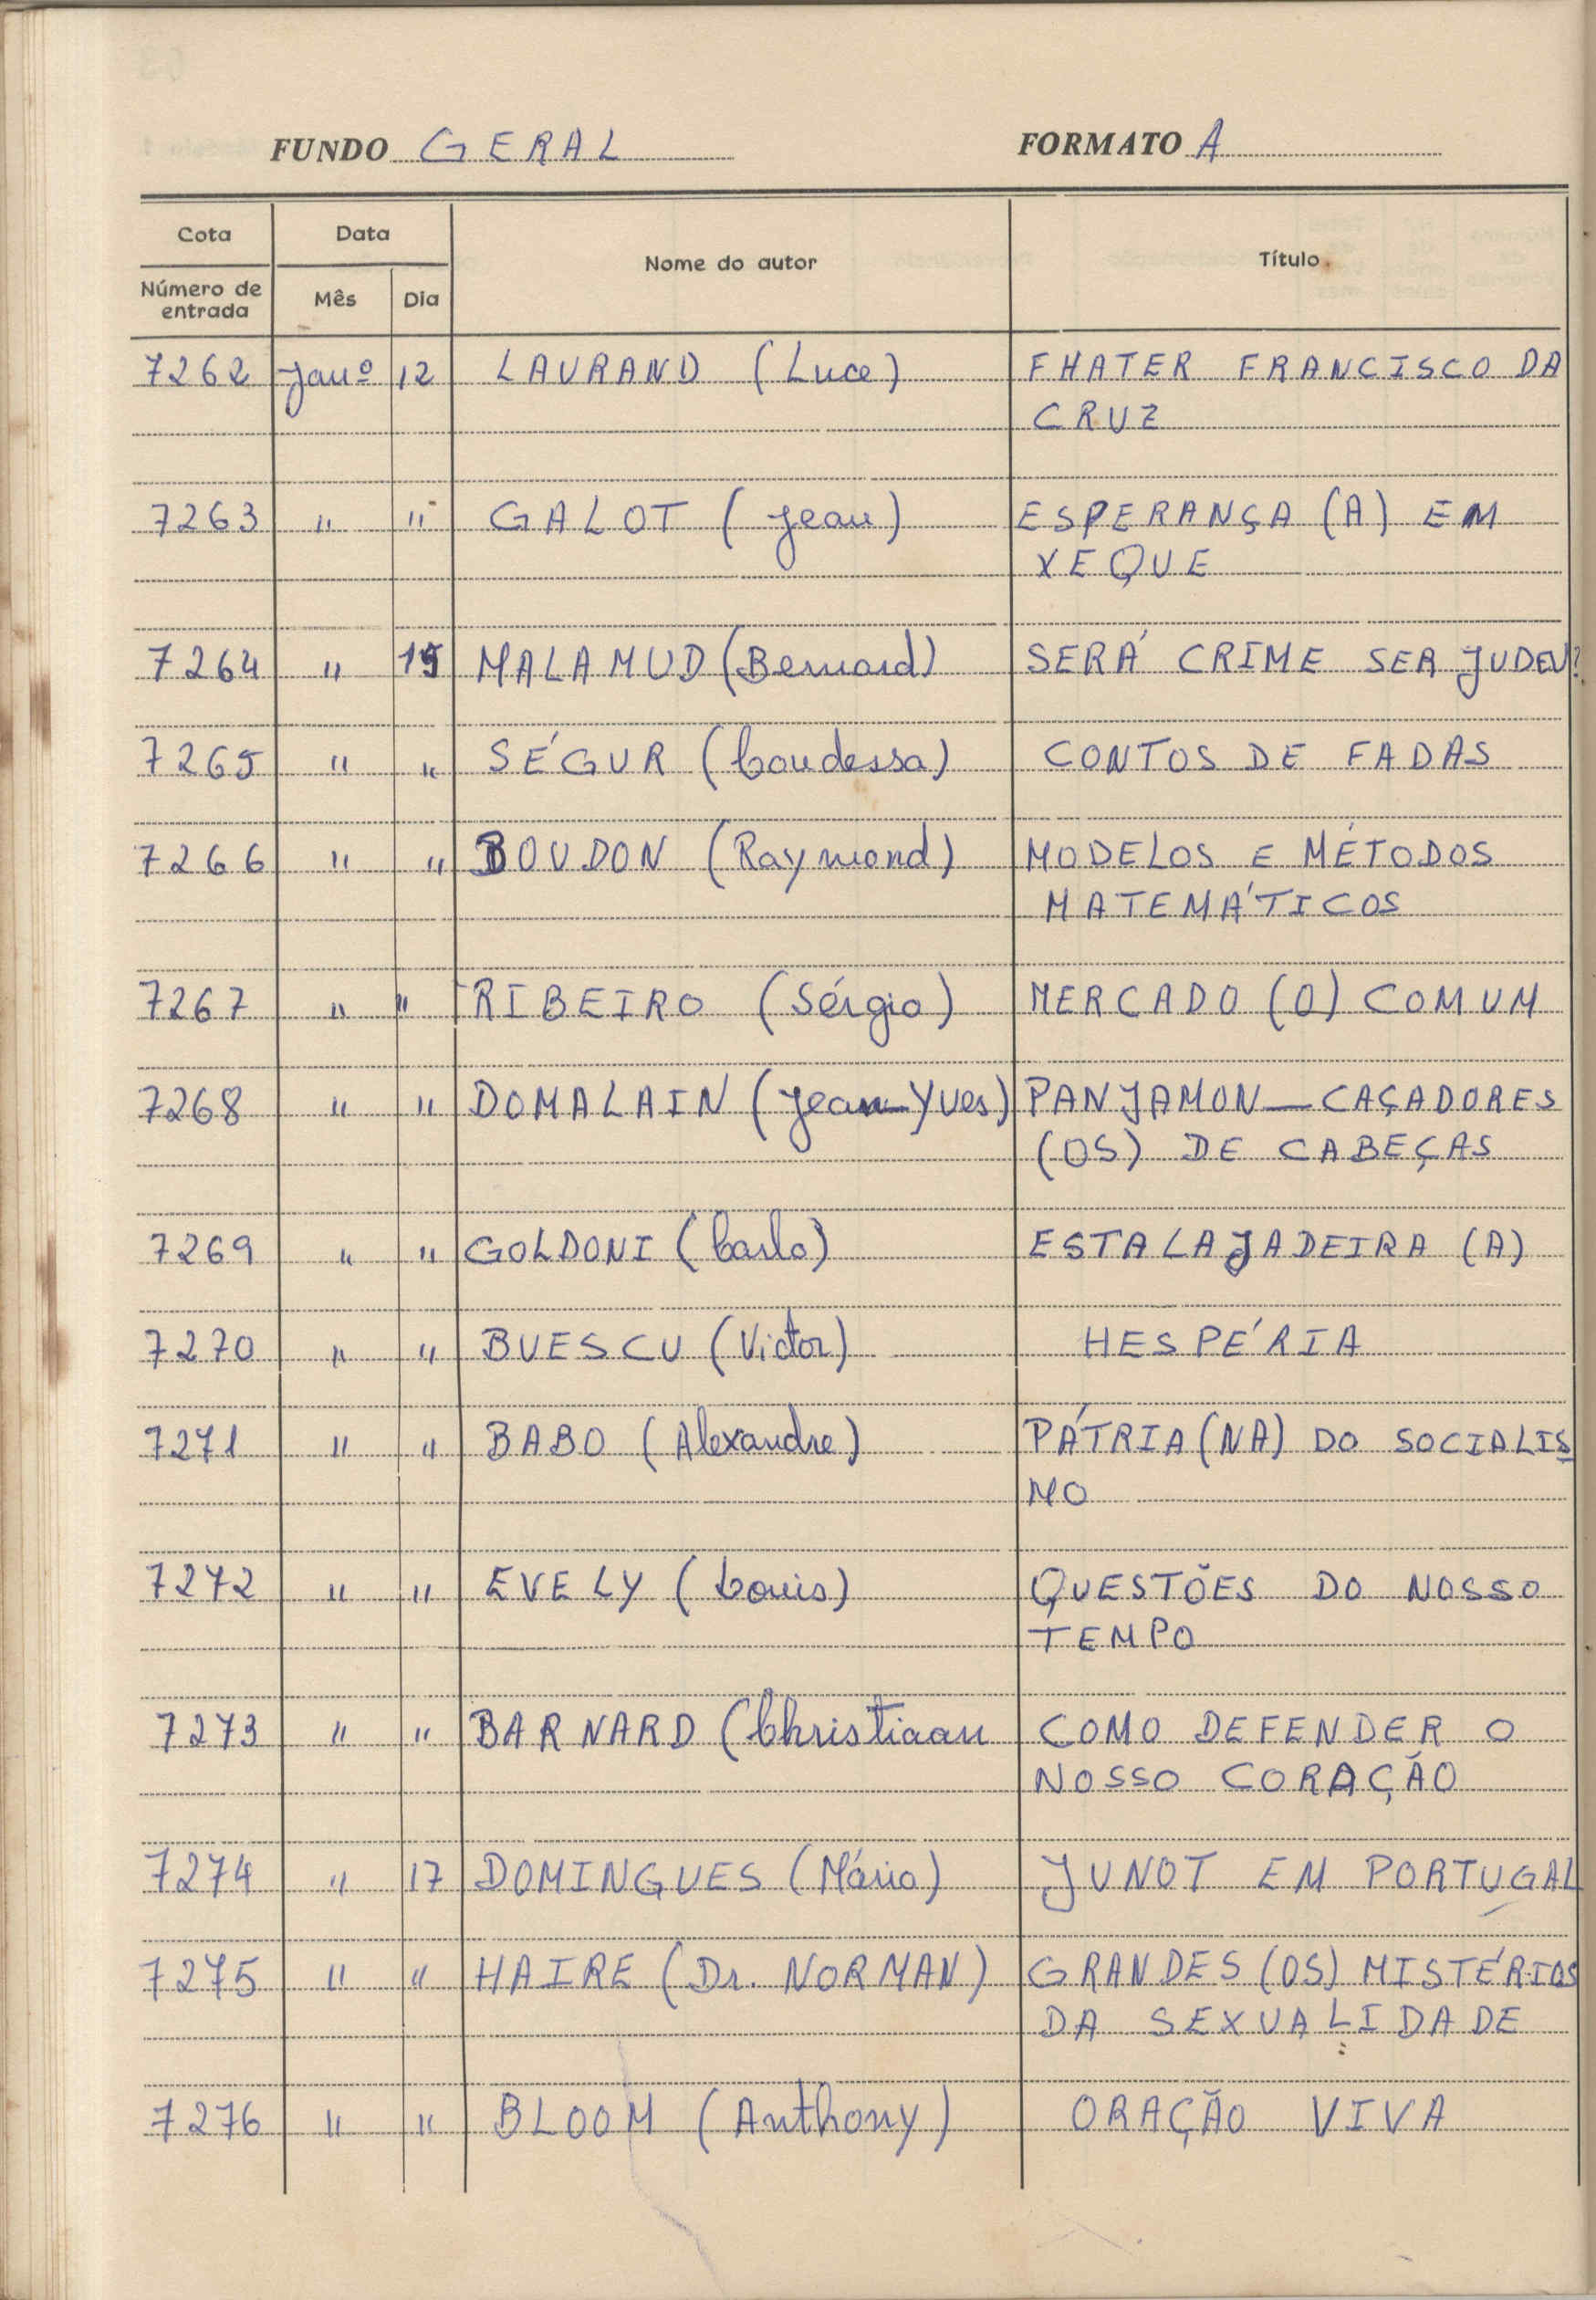 FUNDO GERAL FORMATO A
Cota Data Nome do autor Título
Número de entrada Mês Dia
7262 Janº 12 LAURAND (Luce) FHATER FRANCISCO DA
CRUZ
7263 " " GALOT (Jean) ESPERANÇA (A) EM
XEQUE
7264 " 15 MALAMUD (Bernard) SERÁ CRIME SER JUDEU?
7265 " " SÉGUR (Condessa) CONTOS DE FADAS
7266 " " BOUDON (Raymond) MODELOS E MÉTODOS
MATEMÁTICOS
7267 " " RIBEIRO (Sérgio) MERCADO (O) COMUM
7268 " " DOMALAIN (Jean-Yves) PANJAMON — CAÇADORES
(OS) DE CABEÇAS
7269 " " GOLDONI (Carlo) ESTALAJADEIRA (A)
7270 " " BUESCU (Victor) HESPÉRIA
7271 " " BABO (Alexandre) PÁTRIA (NA) DO SOCIALIS
MO
7272 " " EVELY (Louis) QUESTÕES DO NOSSO
TEMPO
7273 " " BARNARD (Christiaan COMO DEFENDER O
NOSSO CORAÇÃO
7274 " 17 DOMINGUES (Mário) JUNOT EM PORTUGAL
7275 " " HAIRE (Dr. NORMAN) GRANDES (OS) MISTÉRIOS
DA SEXUALIDADE
7276 " " BLOOM (Anthony) ORAÇÃO VIVA